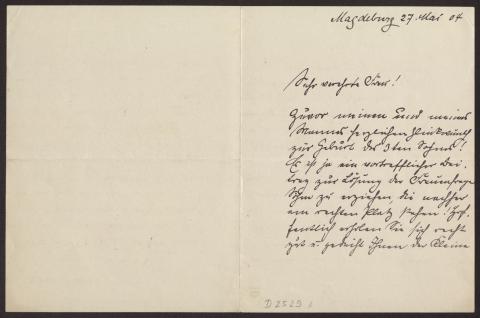 Magdeburg 27. Mai 04
Sehr verehrte Frau!
Zuvor meinen und meines
Mannes herzlichen Glückwunsch
zur Geburt des 3ten Sohnes!
Es ist ja ein vortrefflicher Bei-
trag zur Lösung der Frauenfrage
Söhne zu erziehen, die nachher
am rechten Platz stehen! Hof-
fentlich erholen Sie sich recht
gut u. gedeiht Ihnen der Kleine
D 2529